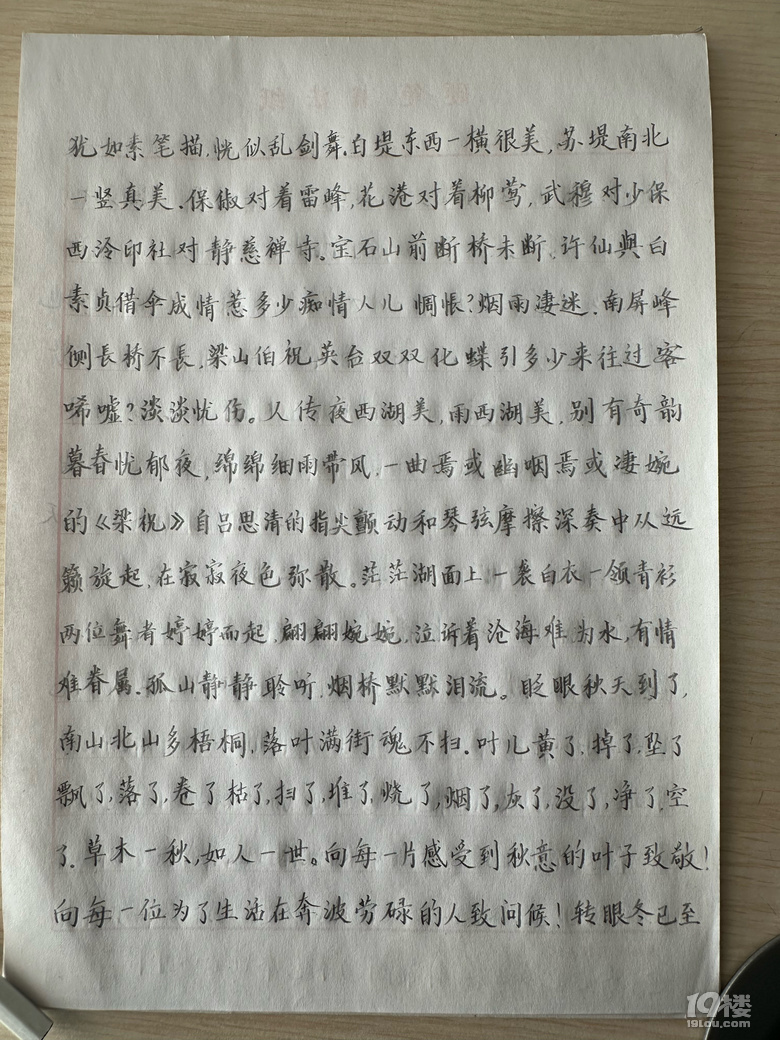 犹如素笔描,恍似乱剑舞.白堤东西一横很美,苏堤南北
一竖真美.保俶对着雷峰,花港对着柳莺,武穆对少保
西泠印社对静慈禅寺。宝石山前断桥未断,许仙與白
素贞借伞成情惹多少痴情人儿惆怅?烟雨凄迷.南屏峰
侧長桥不長,梁山伯祝英台双双化蝶引多少来往过客
唏嘘?淡淡忧伤。人传夜西湖美,雨西湖美,别有奇韵
暮春忧郁夜,绵绵细雨带风.一曲焉或幽咽焉或凄婉
的《梁祝》自吕思清的指尖颤动和琴弦摩擦深奏中从远
籁旋起,在寂寂夜色弥散。茫茫湖面上,一袭白衣一领青衫
两位舞者婷婷而起,翩翩婉婉,泣诉着沧海难为水,有情
难眷属.孤山静静聆听.烟桥默默泪流。眨眼秋天到了,
南山北山多梧桐.落叶满街魂不扫.叶儿黄了.掉了.坠了
飘了,落了,卷了枯了,扫了,堆了,烧了,烟了,灰了,没了,净了.空
了.草木一秋,如人一世。向每一片感受到秋意的叶子致敬!
向每一位为了生活在奔波劳碌的人致问候!转眼冬已至
19楼
19lou.com